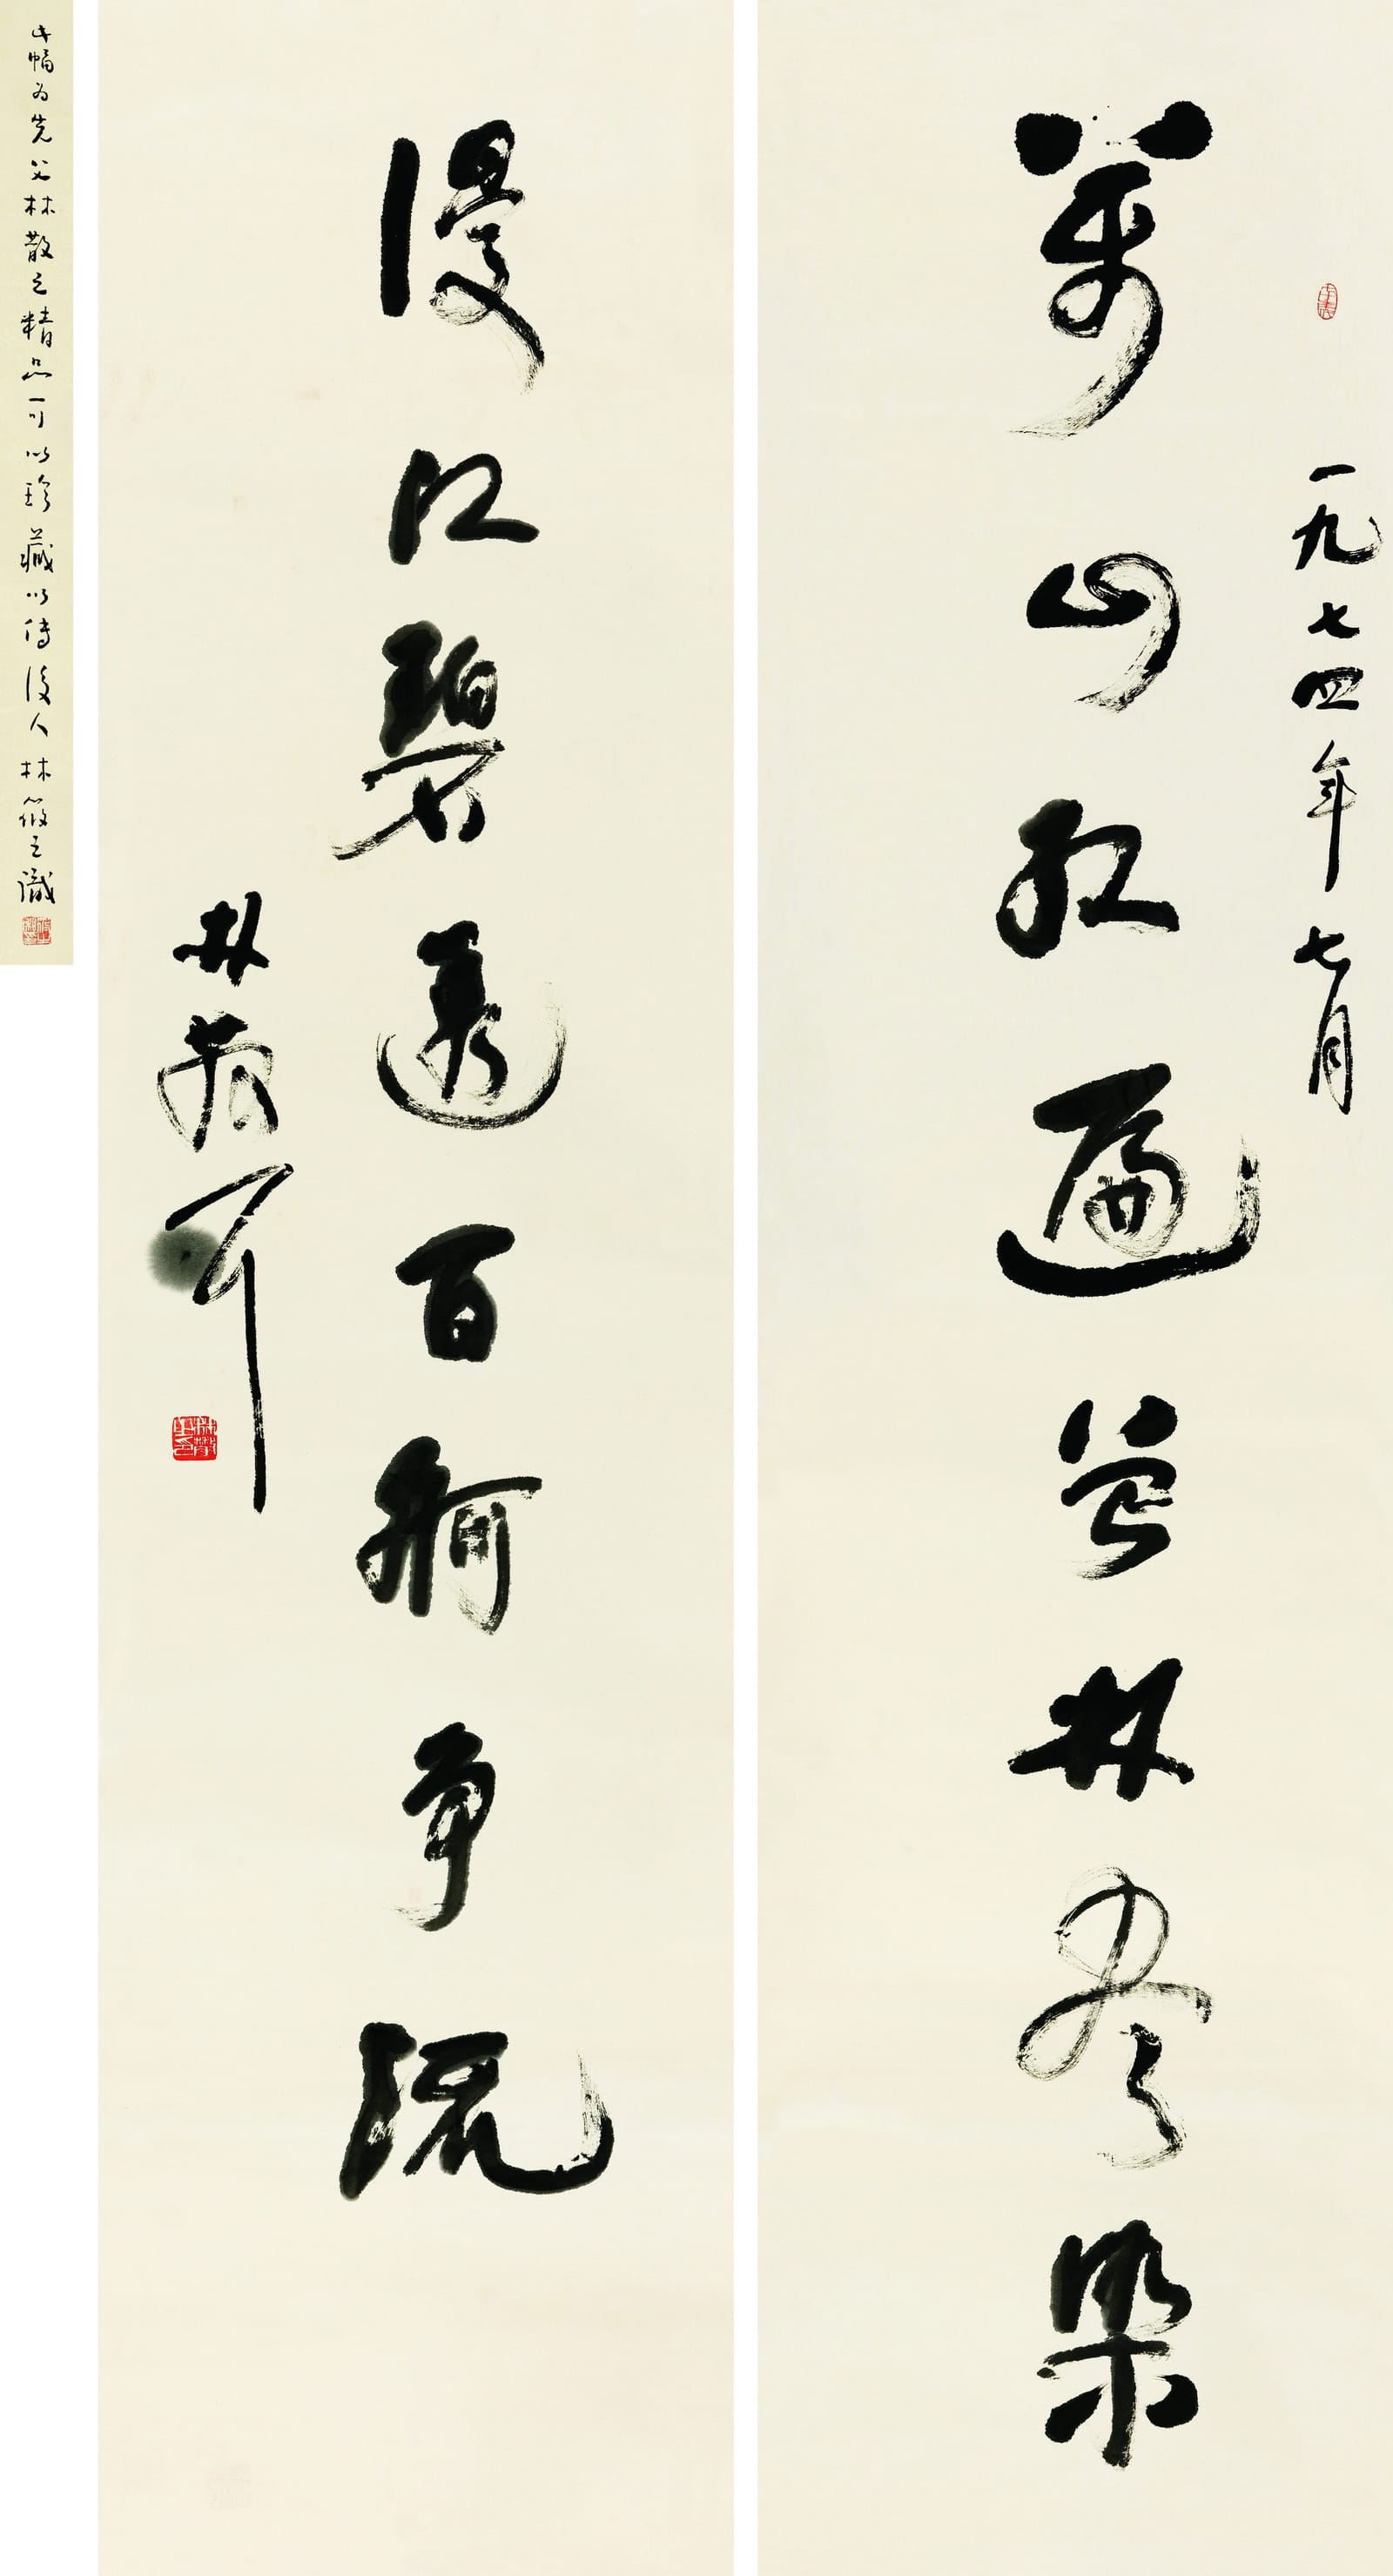 一九七四年七月
萬山紅遍曾林尽染
漫江碧透百舸争流
林散耳
林散之印
此幅为先父林散之精品可以珍藏以傳後人林筱之識